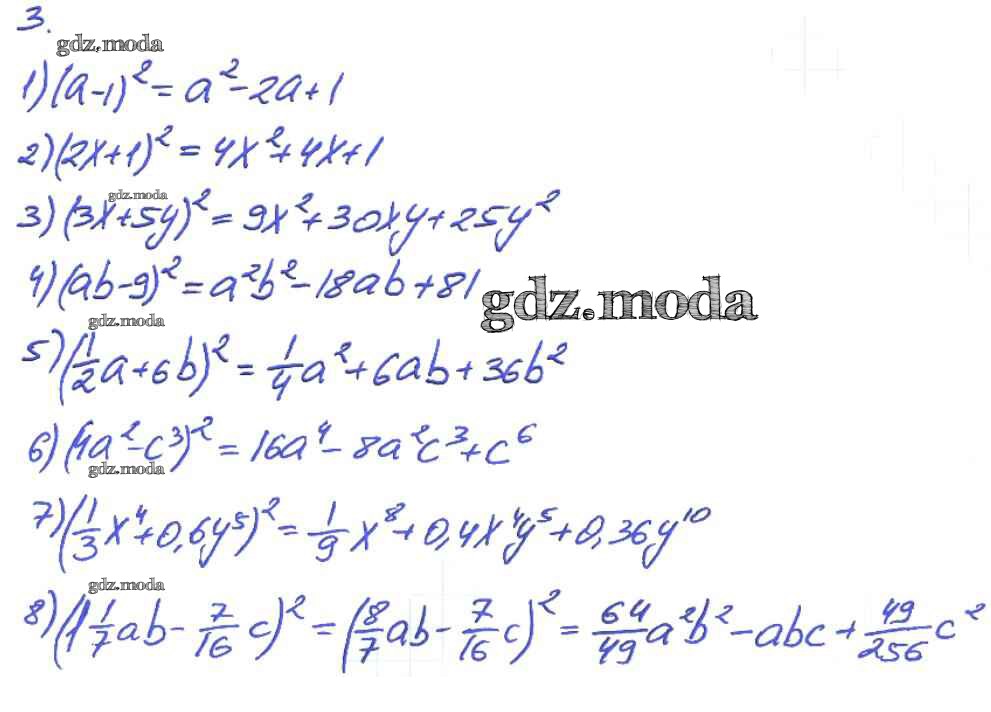 3.
gdz.moda
1) (a-1)² = a² - 2a + 1
2) (2x+1)² = 4x² + 4x + 1
gdz.moda
3) (3x+5y)² = 9x² + 30xy + 25y²
4) (ab-9)² = a²b² - 18ab + 81
gdz.moda
gdz.moda
5) (1/2a + 6b)² = 1/4a² + 6ab + 36b²
6) (4a² - c³)² = 16a⁴ - 8a²c³ + c⁶
gdz.moda
7) (1/3x⁴ + 0,6y⁵)² = 1/9x⁸ + 0,4x⁴y⁵ + 0,36y¹⁰
gdz.moda
8) (1 1/7ab - 7/16c)² = (8/7ab - 7/16c)² = 64/49a²b² - abc + 49/256c²